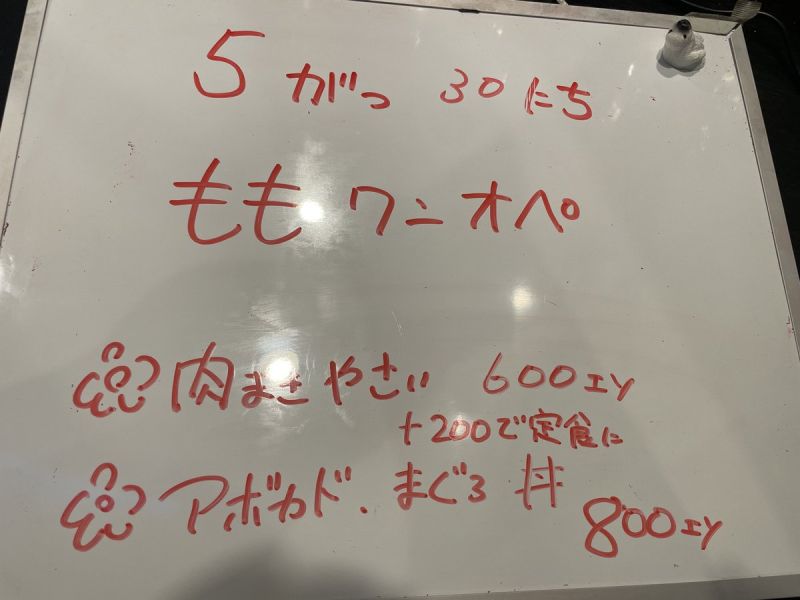 5がつ 30にち
ももワンオペ
肉まきやさい 600エン
+200で定食に
アボカド、まぐろ丼 800エン